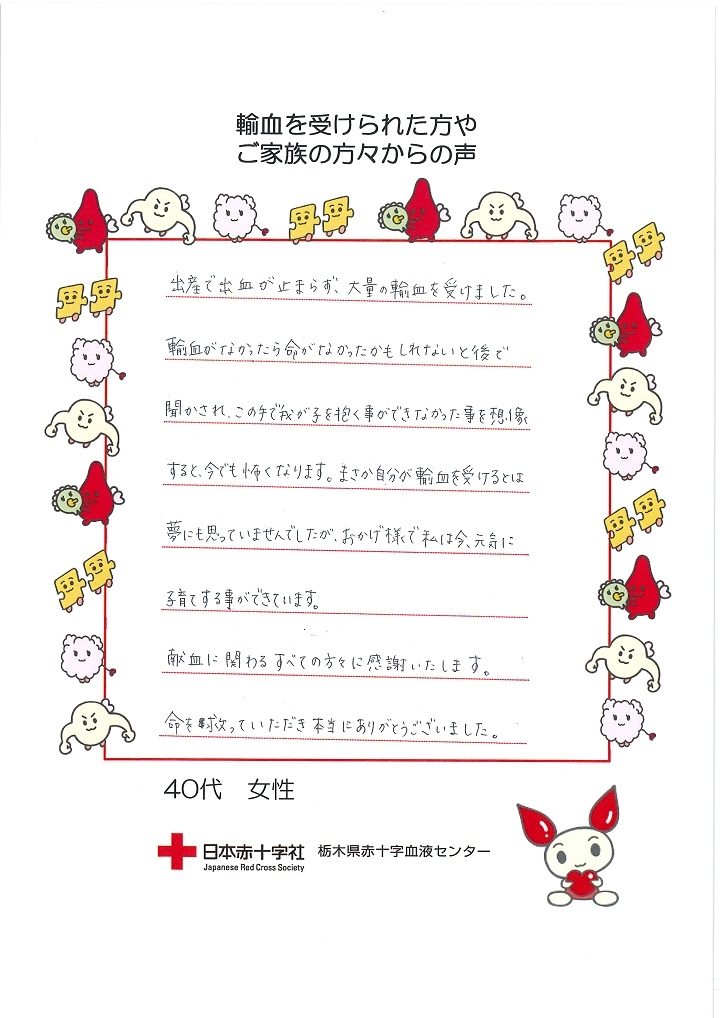 輸血を受けられた方や
ご家族の方々からの声
出産で出血が止まらず、大量の輸血を受けました。
輸血がなかったら命がなかったかもしれないと後で
聞かされ、この手で我が子を抱く事ができなかった事を想像
すると、今でも怖くなります。まさか自分が輸血を受けるとは
夢にも思っていませんでしたが、おかげ様で私は今、元気に
子育てする事ができています。
献血に関わるすべての方々に感謝いたします。
命を救っていただき本当にありがとうございました。
40代 女性
日本赤十字社 栃木県赤十字血液センター
Japanese Red Cross Society